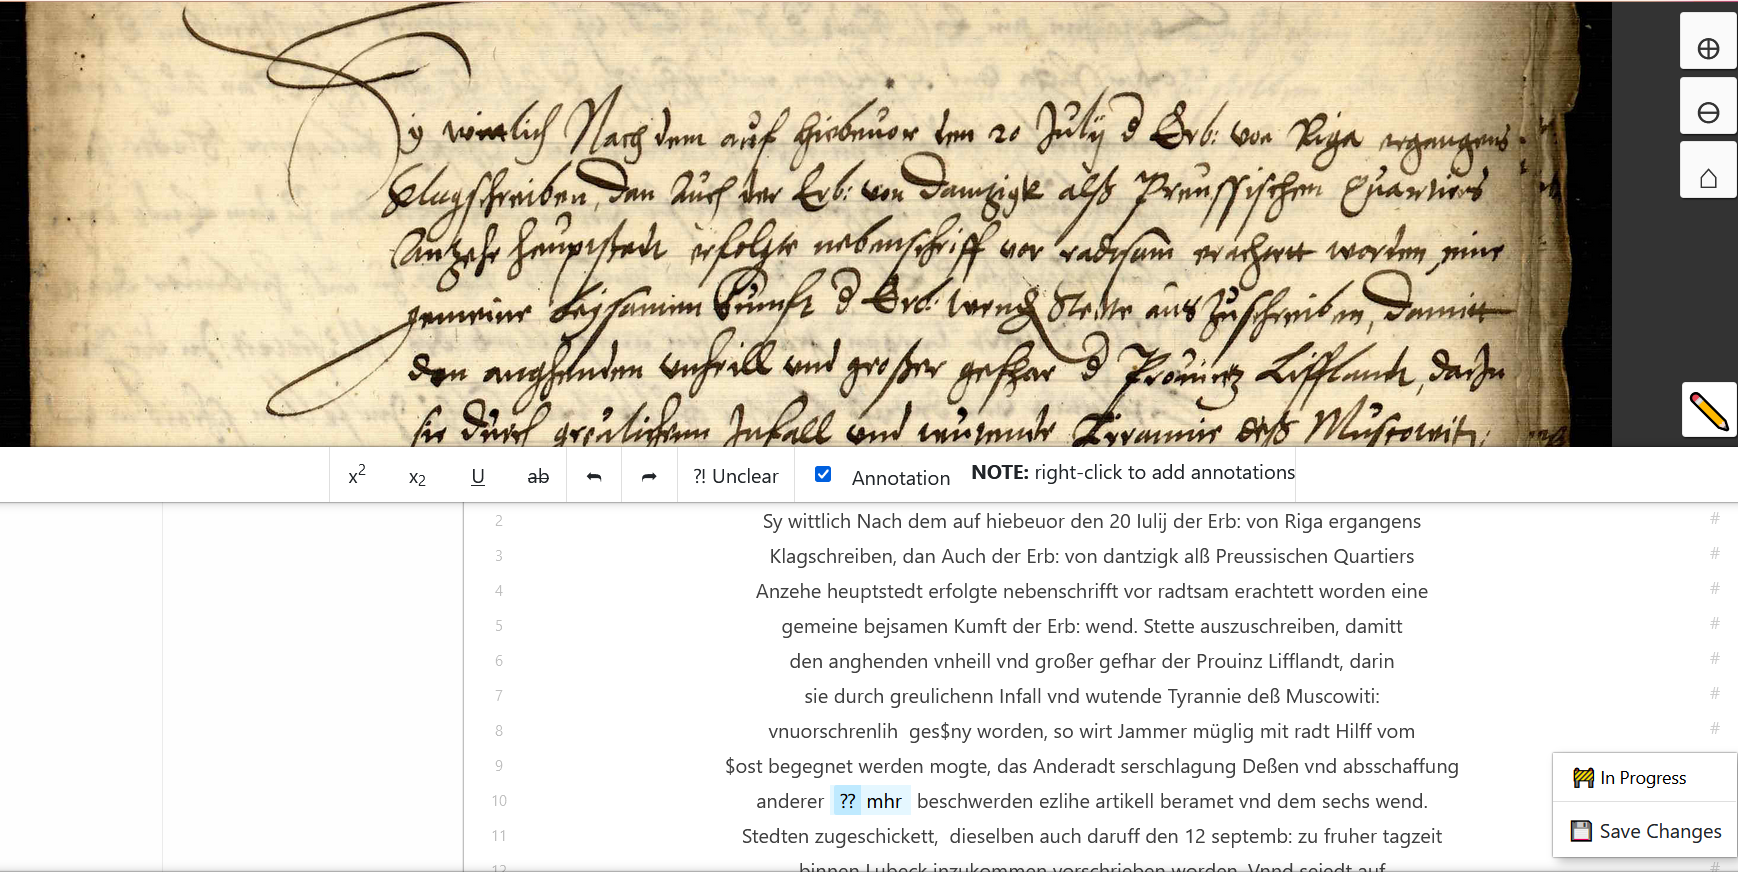 Sy wittlich Nach dem auf hiebeuor den 20 Julij d Erb: von Riga ergangens
Klagschreiben, dan Auch der Erb: von Dantzigk alß Preussischen Quartiers
Anzehe heuptstedt erfolgte nebenschrifft vor radtsam erachtett worden eine
gemeine beysamen Kumfft d Erb: wend. Stette auszuschreiben, damitt
den anghenden vnheill vnd großer gefhar d Prouintz Lifflandt, darin
sie durch greulichenn Infall vnd wutende Tyrannie deß Muscowit:
x2
x2
U
ab
?! Unclear
Annotation
NOTE: right-click to add annotations
2 Sy wittlich Nach dem auf hiebeuor den 20 Iulij der Erb: von Riga ergangens #
3 Klagschreiben, dan Auch der Erb: von dantzigk alß Preussischen Quartiers #
4 Anzehe heuptstedt erfolgte nebenschrifft vor radtsam erachtett worden eine #
5 gemeine bejsamen Kumft der Erb: wend. Stette auszuschreiben, damitt #
6 den anghenden vnheill vnd großer gefhar der Prouinz Lifflandt, darin #
7 sie durch greulichenn Infall vnd wutende Tyrannie deß Muscowiti: #
8 vnuorschrenlih ges$ny worden, so wirt Jammer müglig mit radt Hilff vom #
9 $ost begegnet werden mogte, das Anderadt serschlagung Deßen vnd absschaffung
10 anderer ?? mhr beschwerden ezlihe artikell beramet vnd dem sechs wend.
11 Stedten zugeschickett, dieselben auch daruff den 12 septemb: zu fruher tagzeit
12 binnen Lubeck inzukommen vorschrieben worden. Vnnd seiedt auf #
In Progress
Save Changes